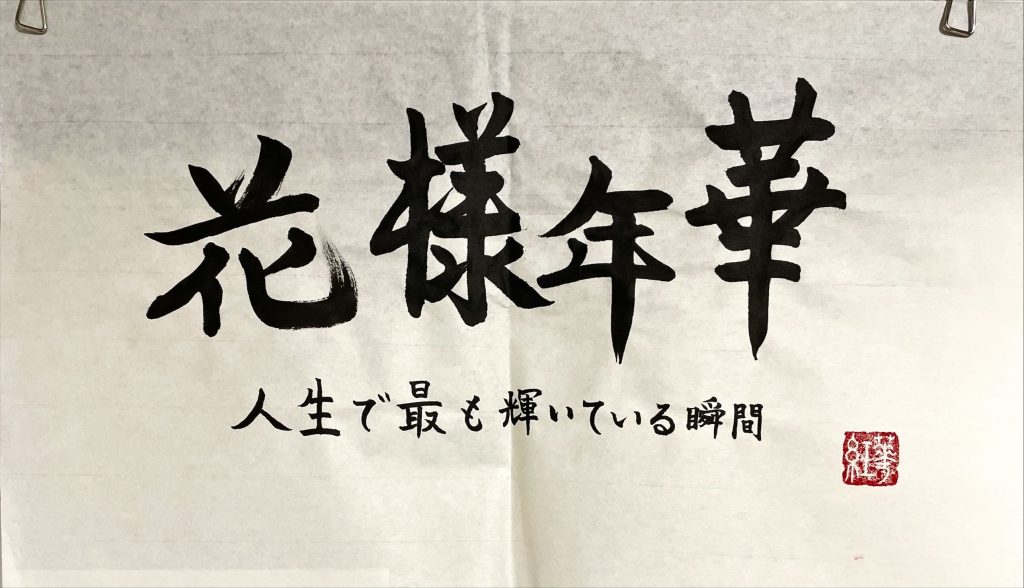 花様年華
人生で最も輝いている瞬間
紅華